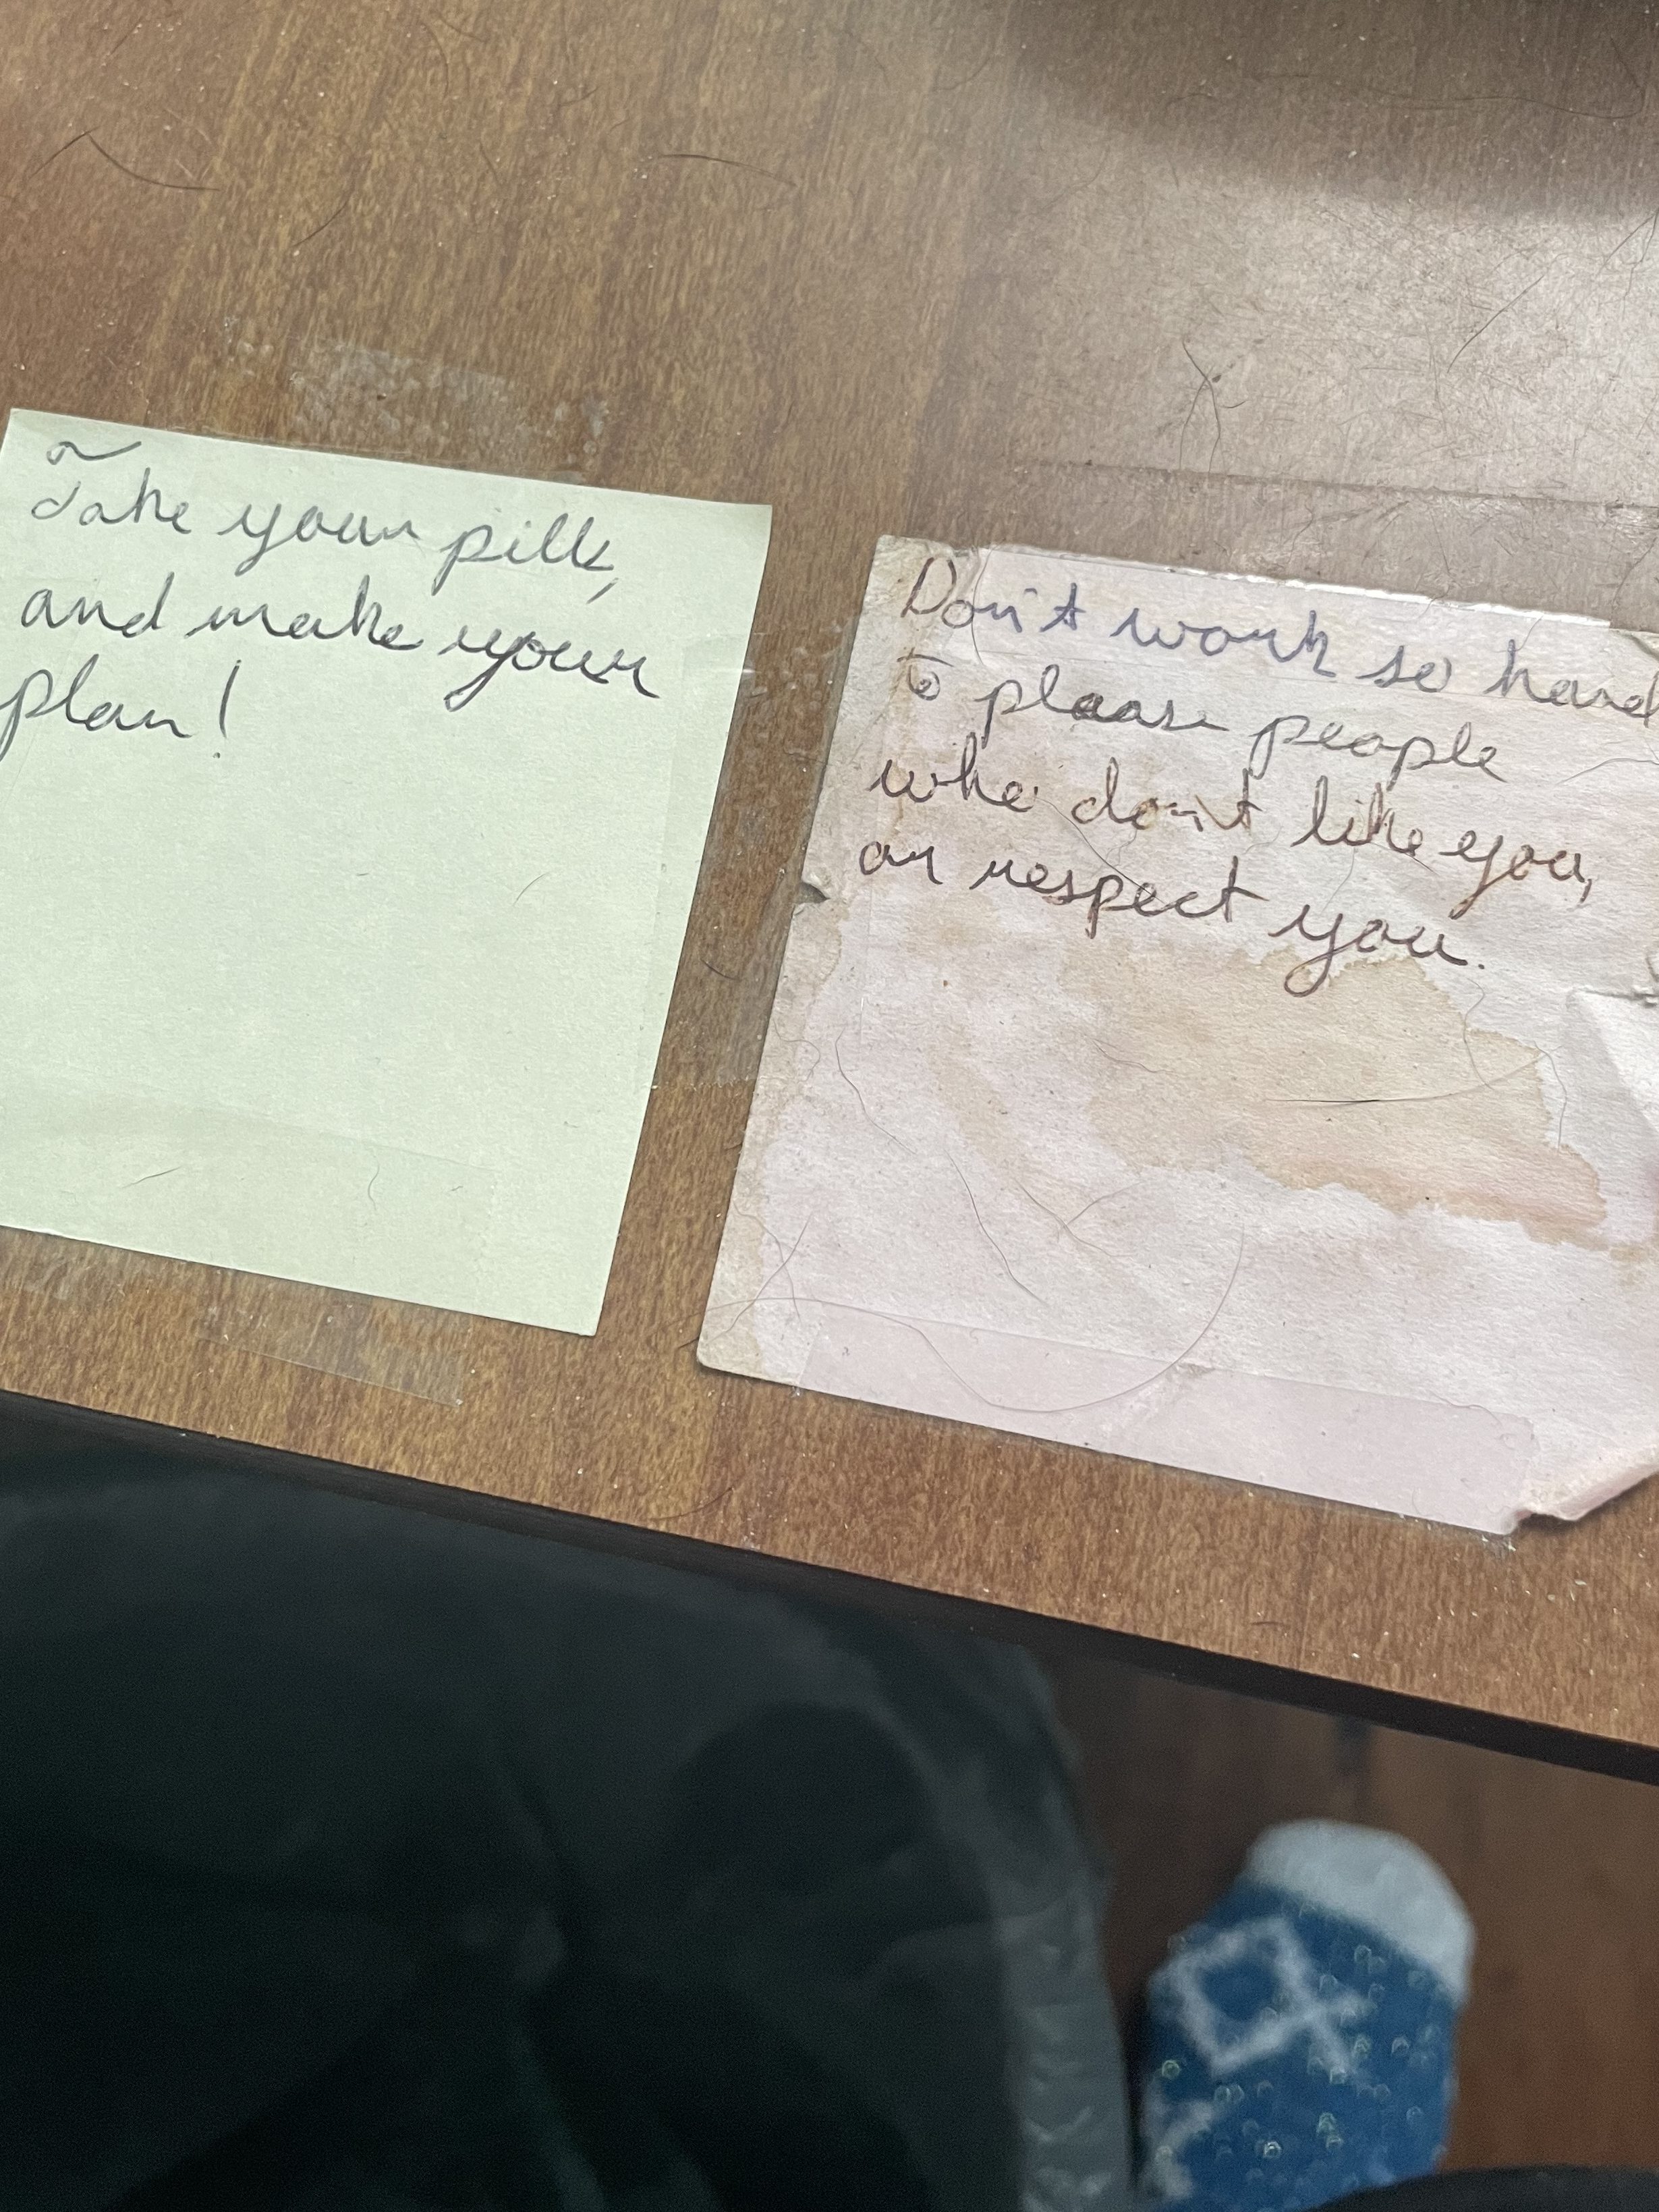 Take your pills,
and make your
plan!
Don't work so hard
to please people
who don't like you,
or respect you.